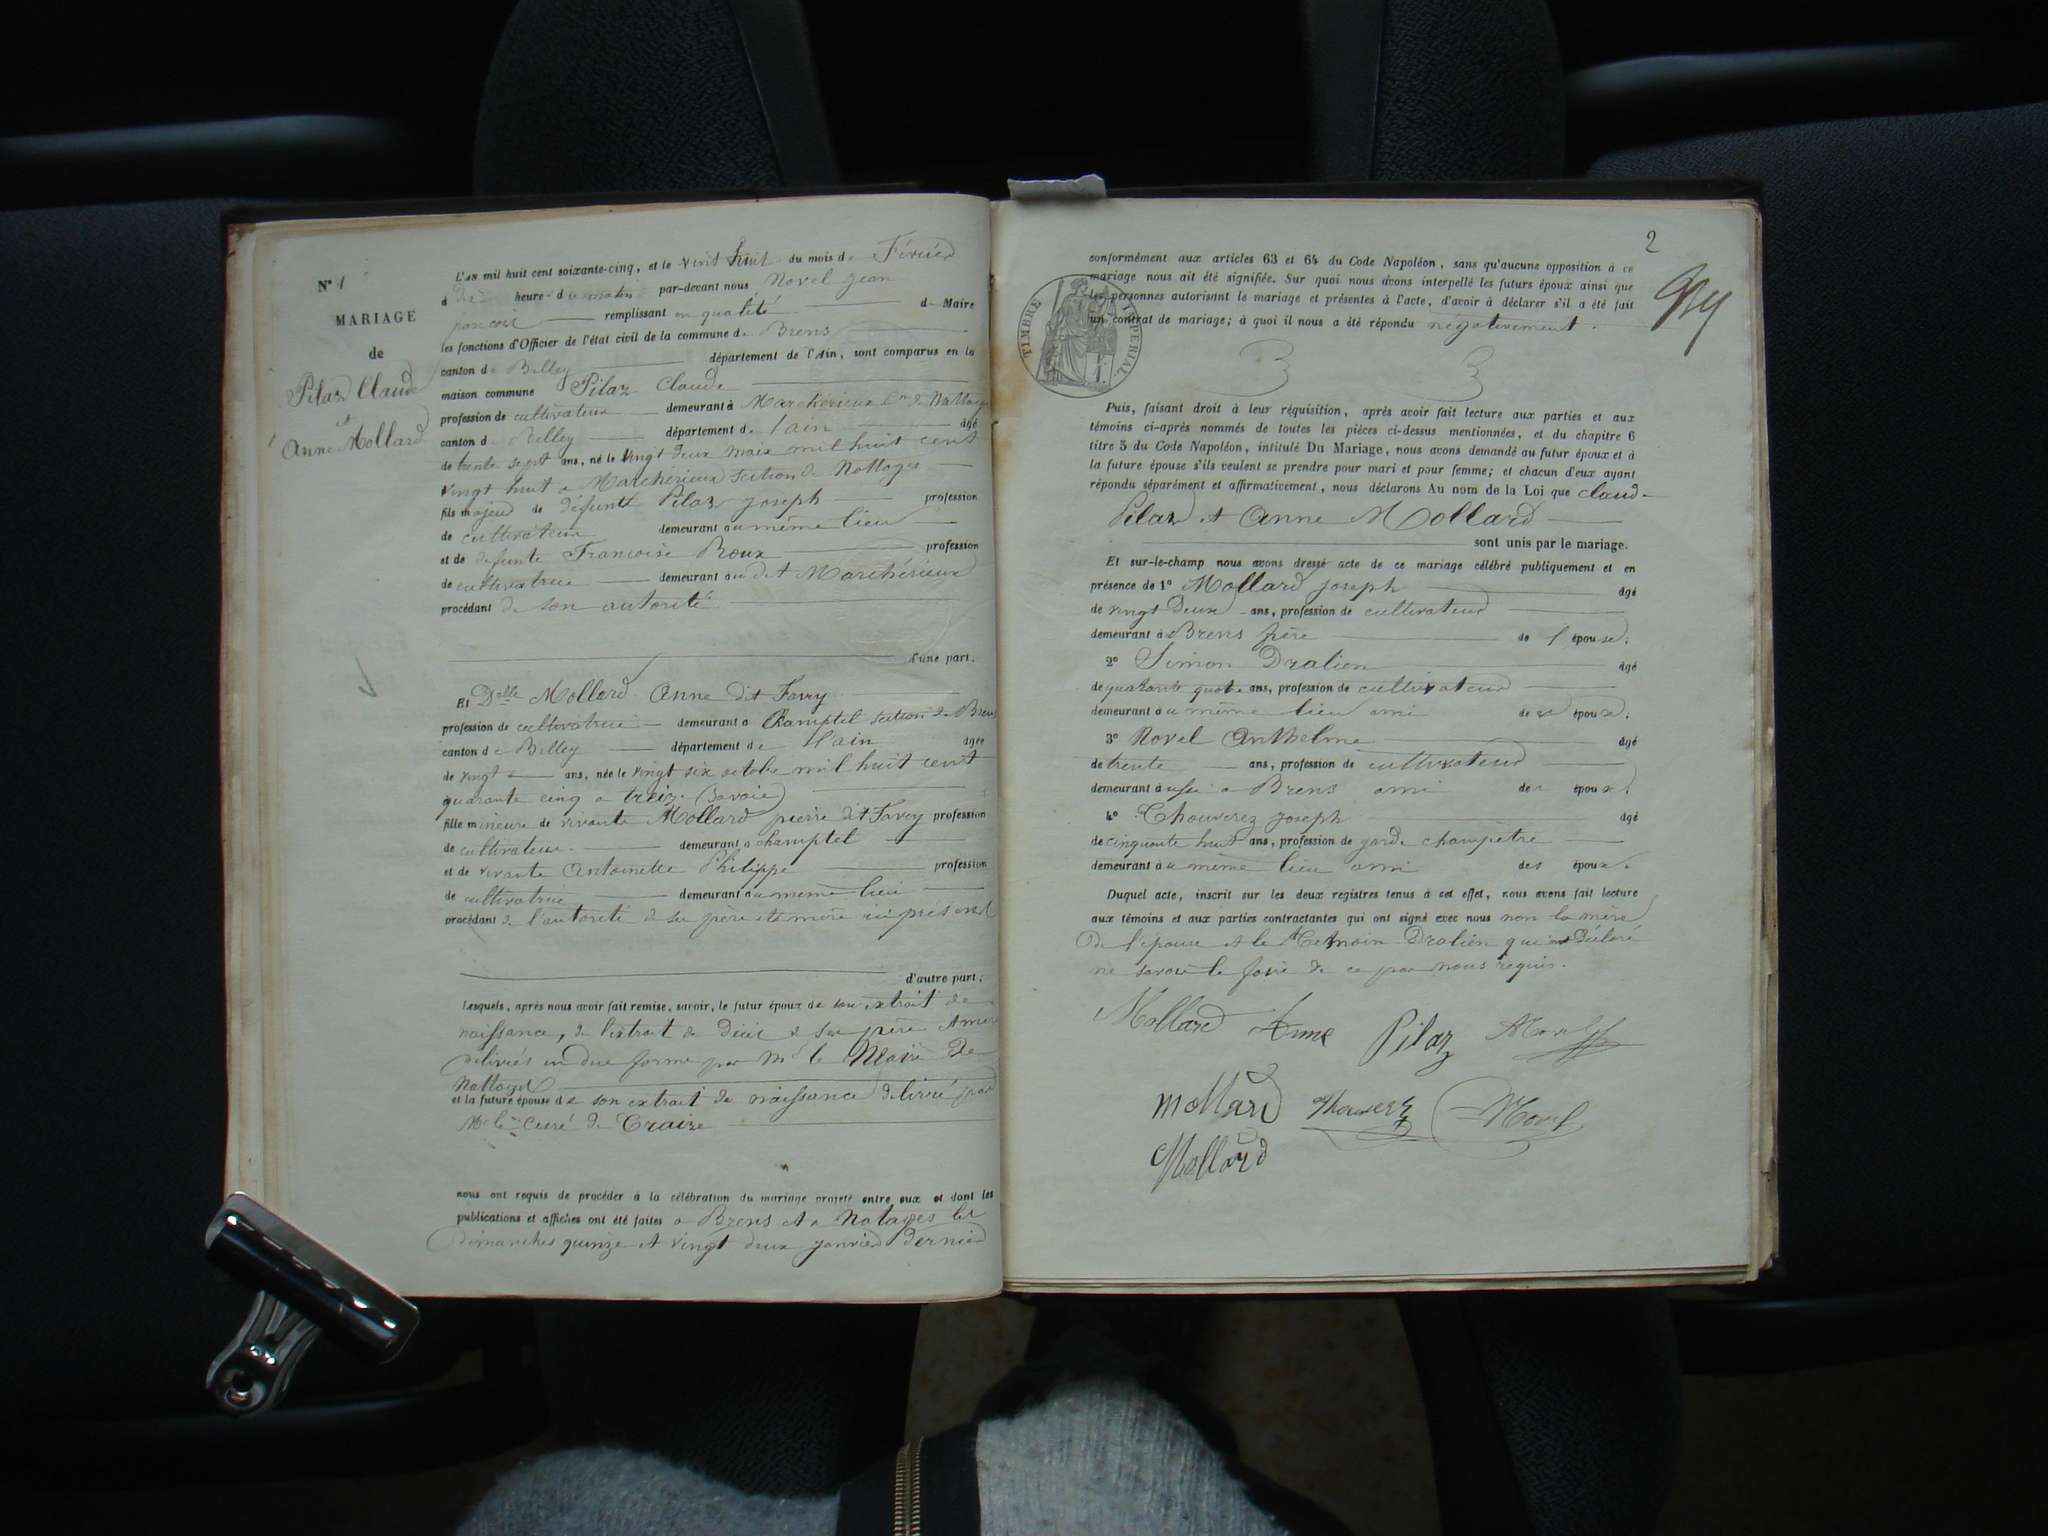 N° 1
MARIAGE
de
Pilaz Claude
et
Anne Mollard
L'AN mil huit cent soixante-cinq, et le vint huit du mois de Février
à dix heures du matin par-devant nous Novel jean
françois remplissant en qualité de Maire
les fonctions d'Officier de l'état civil de la commune de Brens
canton de Belley département de l'Ain, sont comparus en la
maison commune Pilaz Claude
profession de cultivateur demeurant à Marcherieux Cne de Nattages
canton de Belley département de l'ain âgé
de trente sept ans, né le vingt deux mais mil huit cent
vingt huit a Marcherieux section de Nottages
fils majeur de défunt Pilaz joseph profession
de cultivateur demeurant au même lieu
et de defunte Francoise Roux profession
de cultivatrice demeurant au dit Marchérieux
procédant de son autorité
d'une part.
Et Delle Mollard Anne dit Favry
profession de cultivatrice demeurant a Champtel section de Brens
canton de Belley département de l'ain âgée
de vingt ans, née le vingt six octobre mil huit cent
quarante cinq a treize (Savoie)
fille mineure de vivante Mollard pierre dit Favry profession
de cultivateur demeurant a champtel
et de vivante Antoinette Philippe profession
de cultivatrice demeurant au même lieu
procédant de l'autorité de ses père et mère ici présent
d'autre part.
Lesquels, après nous avoir fait remise, savoir, le futur époux de son extrait de
naissance, de l'extrait de décès de ses père et mère
délivrés en due forme par Mr le Maire de
Nattages
et la future épouse de son extrait de naissance délivré par
Mr le Curé de Traize
nous ont requis de procéder à la célébration du mariage projeté entre eux et dont les
publications et affiches ont été faites a Brens et a Natages les
dimanches quinze et vingt deux janvier dernier
2
conformément aux articles 63 et 64 du Code Napoléon, sans qu'aucune opposition à ce
mariage nous ait été signifiée. Sur quoi nous avons interpellé les futurs époux ainsi que
les personnes autorisant le mariage et présentes à l'acte, d'avoir à déclarer s'il a été fait
un contrat de mariage; à quoi il nous a été répondu négativement.
TIMBRE IMPERIAL
Puis, faisant droit à leur réquisition, après avoir fait lecture aux parties et aux
témoins ci-après nommés de toutes les pièces ci-dessus mentionnées, et du chapitre 6
titre 5 du Code Napoléon, intitulé Du Mariage, nous avons demandé au futur époux et à
la future épouse s'ils veulent se prendre pour mari et pour femme; et chacun d'eux ayant
répondu séparément et affirmativement, nous déclarons Au nom de la Loi que claude
Pilaz et Anne Mollard
sont unis par le mariage.
Et sur-le-champ nous avons dressé acte de ce mariage célébré publiquement et en
présence de 1° Mollard joseph âgé
de vingt deux ans, profession de cultivateur
demeurant à Brens frère de l'épouse.
2° Simon Dralien âgé
de quarante quatre ans, profession de cultivateur
demeurant au même lieu ami des époux.
3° Novel Anthelme âgé
de trente ans, profession de cultivateur
demeurant aussi a Brens ami des époux.
4° Chouverez joseph âgé
de cinquante huit ans, profession de garde champetre
demeurant au même lieu ami des époux.
Duquel acte, inscrit sur les deux registres tenus à cet effet, nous avons fait lecture
aux témoins et aux parties contractantes qui ont signé avec nous non la mère
de l'épouse et le temoin Dralien qui ont Déclaré
ne savoir le faire de ce par nous requis.
Mollard Anne Pilaz Novel
mollard Chouverez Novel
Mollard